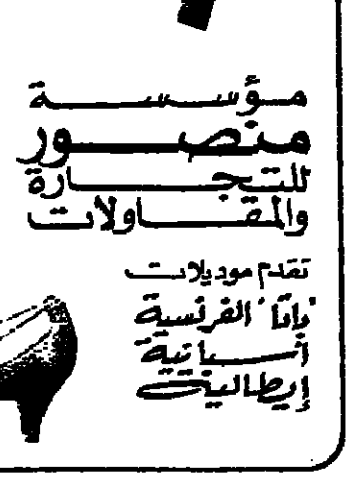 مؤسسة
منصور
للتجارة
والمقاولات
تقدم موديلات
"دانا" الفرنسية
أسبانية
إيطالية